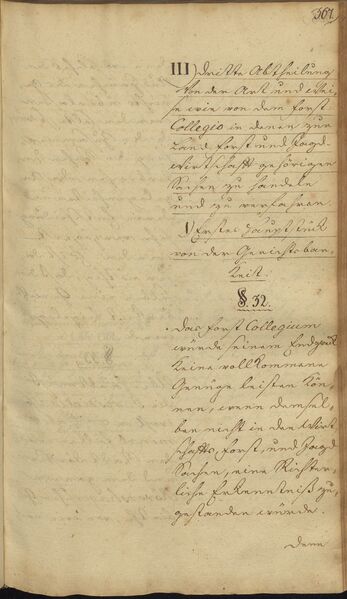 367.
III) Dritte Abtheilung
von der Art und Wei-
se wie von dem Forst
Collegio in denen zur
Land Forst und Jagd-
wirtschafft gehörigen
Sachen zu handeln
und zu verfahren.
1) Erstes Hauptstück
von der Gerichtsbar-
keit.
§. 32.
Das Forst Collegium
würde seinem Endzweck
keine vollkommene
Genüge leisten kön-
nen, wenn demsel-
ben nicht in den Wirt-
schaffts Forst, und Jagd
Sachen, eine Richter-
liche Erkenntniß zu-
gestanden würde.
Denn